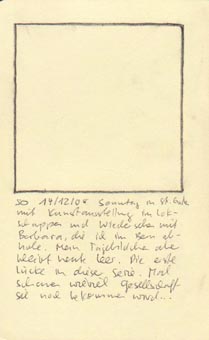 SO 14/12/08 Sonntag in St. Gallen
mit Kunstausstellung im Lok-
schuppen und Wiedersehen mit
Barbara, die ich im Ben ab-
hole. Mein Tagebildchen aber
bleibt heute leer. Die erste
Lücke in dieser Serie. Mal
schauen wieviel Gesellschaft
sie noch bekommen wird...